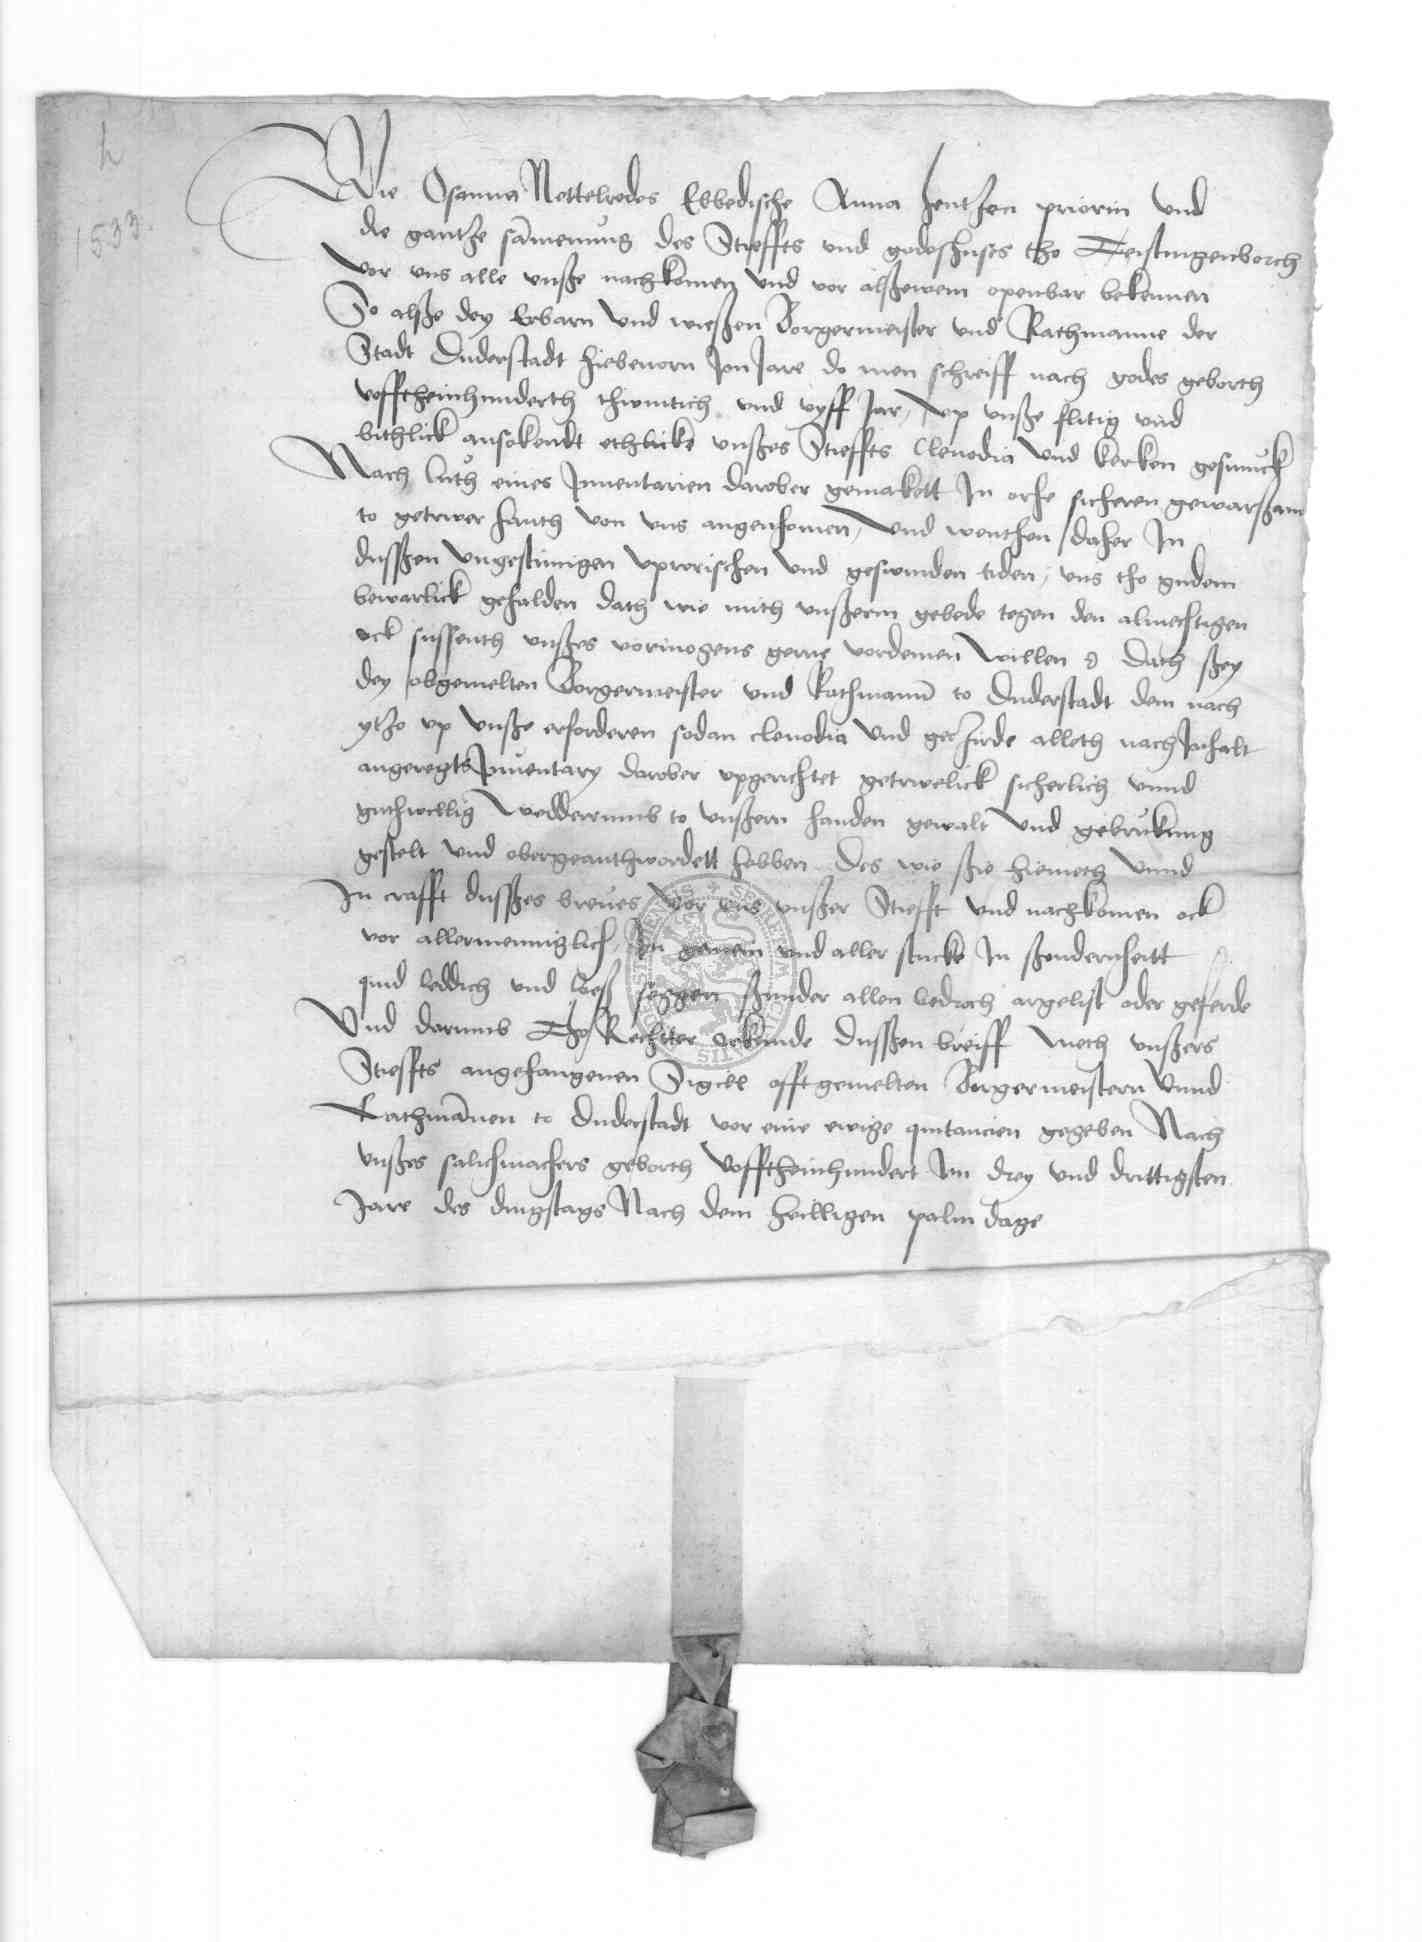 h
1533.
Wie Osanna Nettelrodes Ebbedische Anna hentzen priorin und
die gantze sāmenung des Stieffts und godeshuses tho Teistungenborch
vor uns alle unsße nachkomen und vor alßewem openbar bekennen
So alsße dey Erbarn und wießen Borgermeister und Rathmanne der
Stadt Duderstadt hiebevorn Jm Jare do men schreiff nach godes geborth
vofftheinhunderth thwintich und vyff Jar, up unße flitig und
bithlick ansokendt ethlicke unßes Stieffts Clenodia und kerken gesmuck
Nach luth eines Inventarien darober gemakett In orhe sicheren gewarßam
to getruwer hanth von uns angenhomen, und wenthen daher In
dussßen ungestimigen uprorischen und geswinden tiden, uns tho gudem
bewarlick gehalden dath wie mith unßerm gebede tegen den almechtigen
ock sussenth unßes vormogens gerne vordenen willen Dath ßey
dey obgemelten Borgermeister und Rathmann to Duderstadt dem nach
ytzo up unße erforderen sodan clenodia und gezirde alleth nach Inhalt
angeregts Inventary darober upgerichtet getruwelick sicherlich unnd
guthwillig wedderumb to unßern handen gewalt und gebrukung
gestelt und obergeanthwordett hebben Des wie ßie hiemeth unnd
In crafft dussßes breves vor uns unßer Stiefft und nachkomen ock
vor allermenniglich, In gemein und aller stucke In ßondernheitt
quid leddich und loeß seggen ßunder allen bedroch argelist oder geferde
Und darumb Tho Rechtter orkunde dussßen breiff meth unßers
Stieffts angehangenen Sigill offtgemelten Burgermeistern unnd
Rathmānen to Duderstadt vor eine ewige quitancien gegeben Nach
unßes salichmachers geborth vofftheinhundert Jm drey und drittigsten
Jare des dingstags Nach dem heilligen palm dage